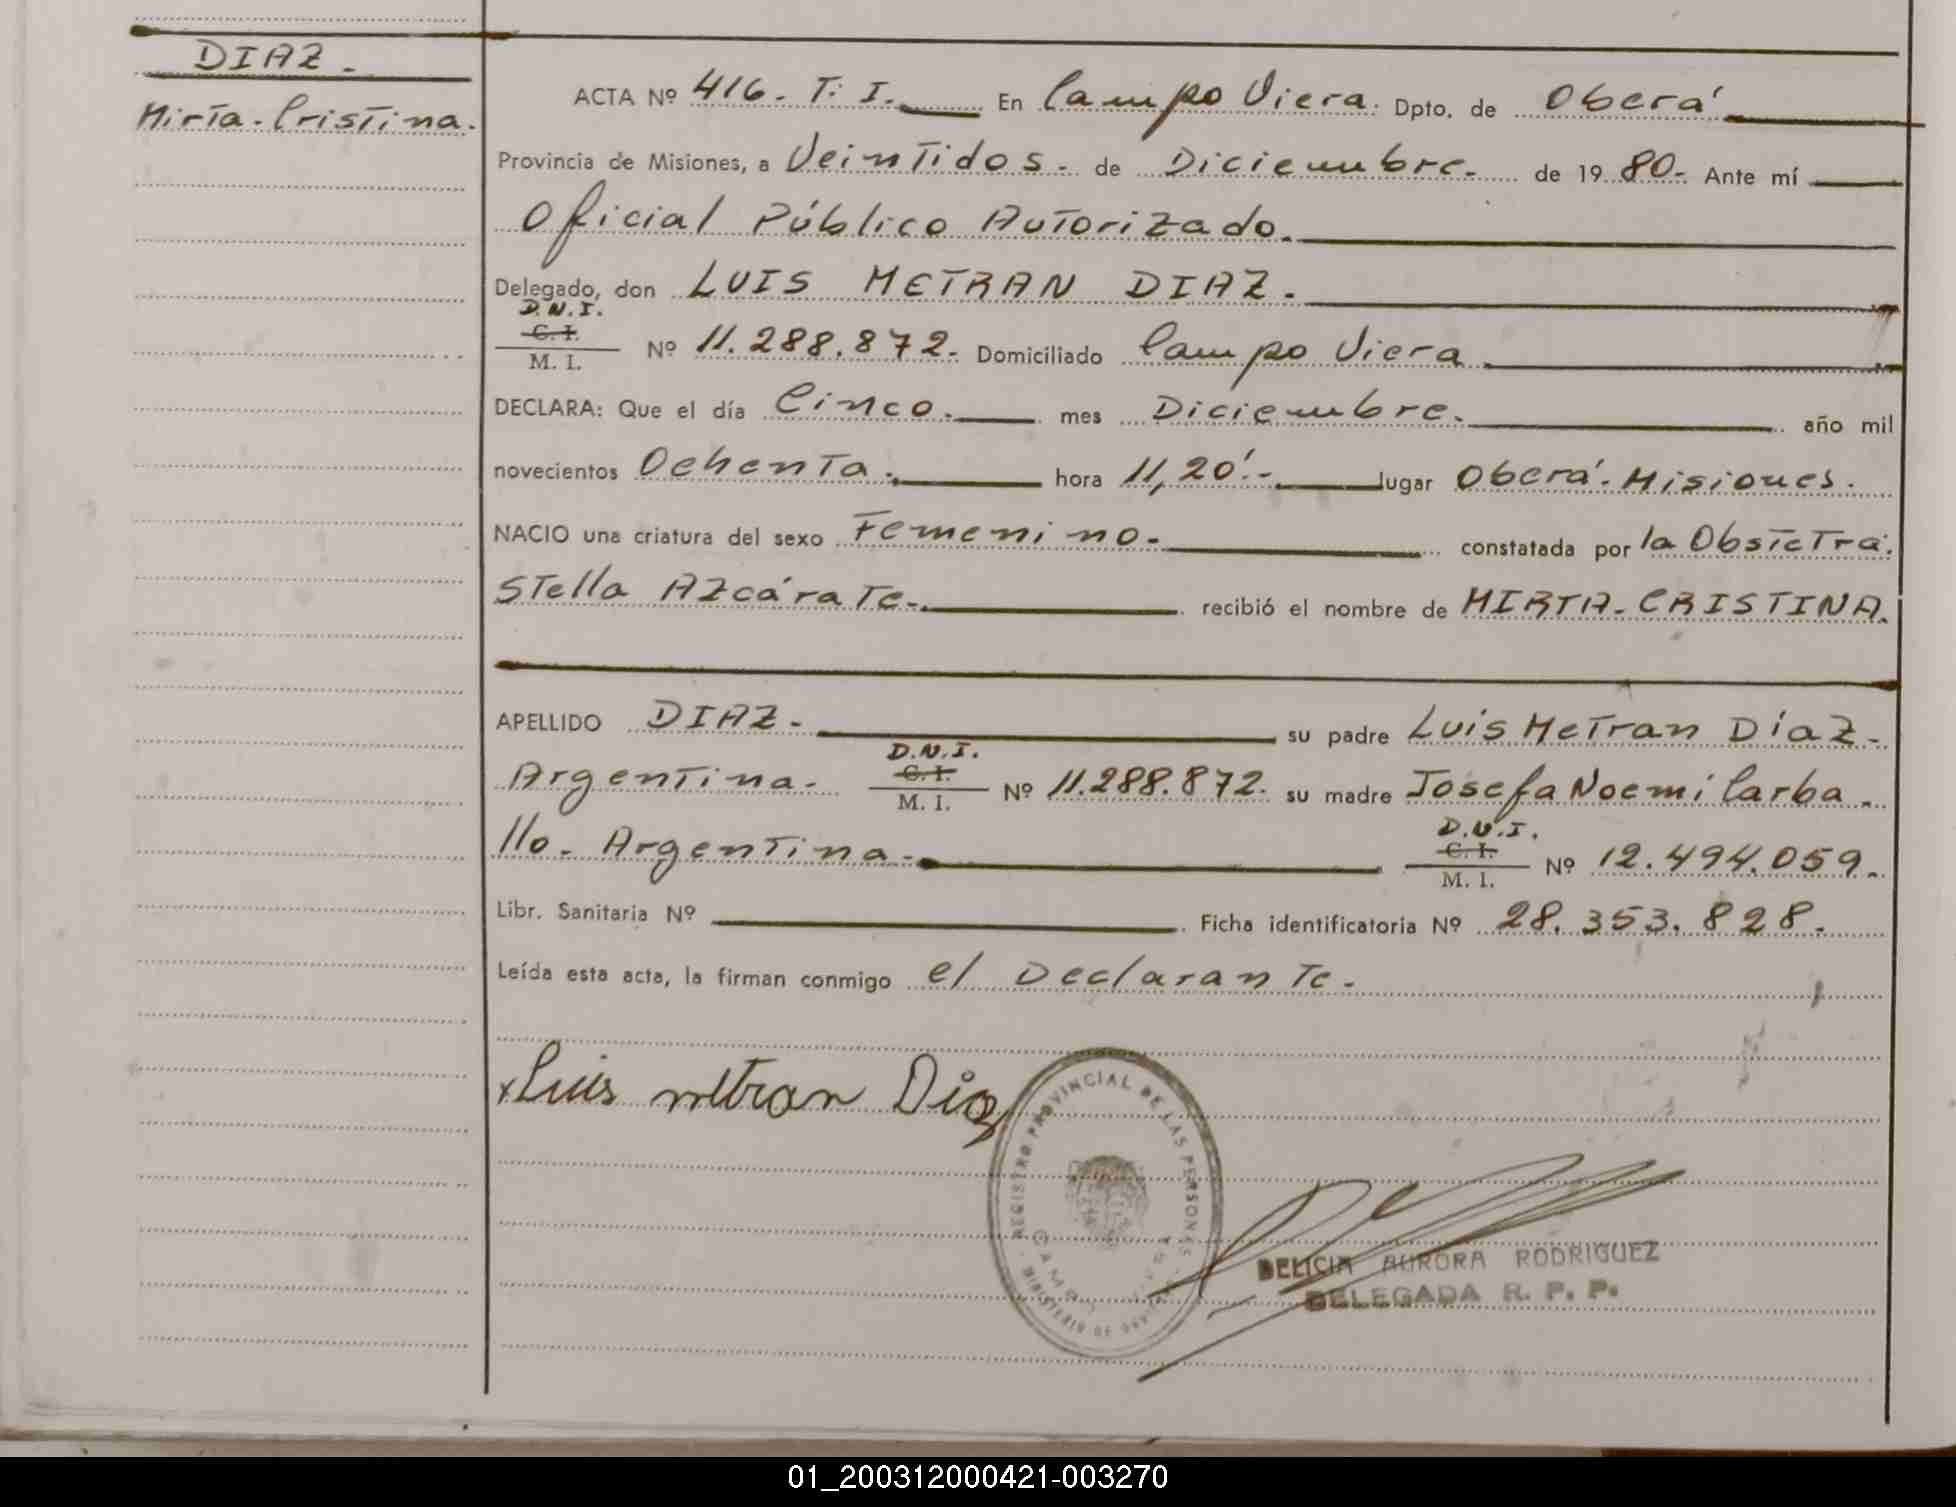 DIAZ.
Mirta. Cristina.
ACTA Nº 416. T. I. En Campo Viera. Dpto. de Oberá
Provincia de Misiones, a Veintidos. de Diciembre. de 1980. Ante mí
Oficial Público Autorizado.
Delegado, don LUIS METRAN DIAZ.
D.N.I.
C. I.
M. I. Nº 11.288.872. Domiciliado Campo Viera
DECLARA: Que el día Cinco. mes Diciembre. año mil
novecientos Ochenta. hora 11,20'.- lugar Oberá. Misiones.
NACIO una criatura del sexo Femenino. constatada por la Obstetra.
Stella Azcárate. recibió el nombre de MIRTA. CRISTINA.
APELLIDO DIAZ. su padre Luis Metran Díaz.
Argentina. D.N.I. C. I. M. I. Nº 11.288.872. su madre Josefa Noemí Carba.
llo. Argentina. D.N.I. C. I. M. I. Nº 12.494.059.
Libr. Sanitaria Nº Ficha identificatoria Nº 28.353.828.
Leída esta acta, la firman conmigo el Declarante.
x Luis metran Diaz
REGISTRO PROVINCIAL DE LAS PERSONAS
MINISTERIO DE
CAMPO
DELICIA AURORA RODRIGUEZ
DELEGADA R. P. P.
01_200312000421-003270